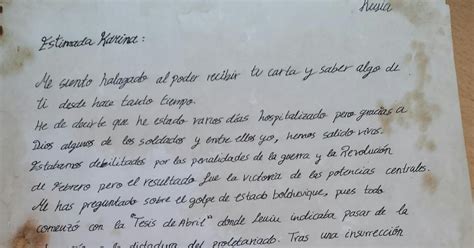 Rusia
Estimada Karina:
Me siento halagado al poder recibir tu carta y saber algo de
ti desde hace tanto tiempo.
He de decirte que he estado varios días hospitalizado pero gracias a
Dios algunos de los soldados y entre ellos yo, hemos salido vivos.
Estabamos debilitados por las penalidades de la guerra y la Revolución
de Febrero pero el resultado fue la victoria de las potencias centrales.
Me has preguntado sobre el golpe de estado bolchevique, pues todo
comenzó con la "Tesis de Abril" donde Lenin indicaba pasar de la
a la dictadura del proletariado. Tras una insurrección